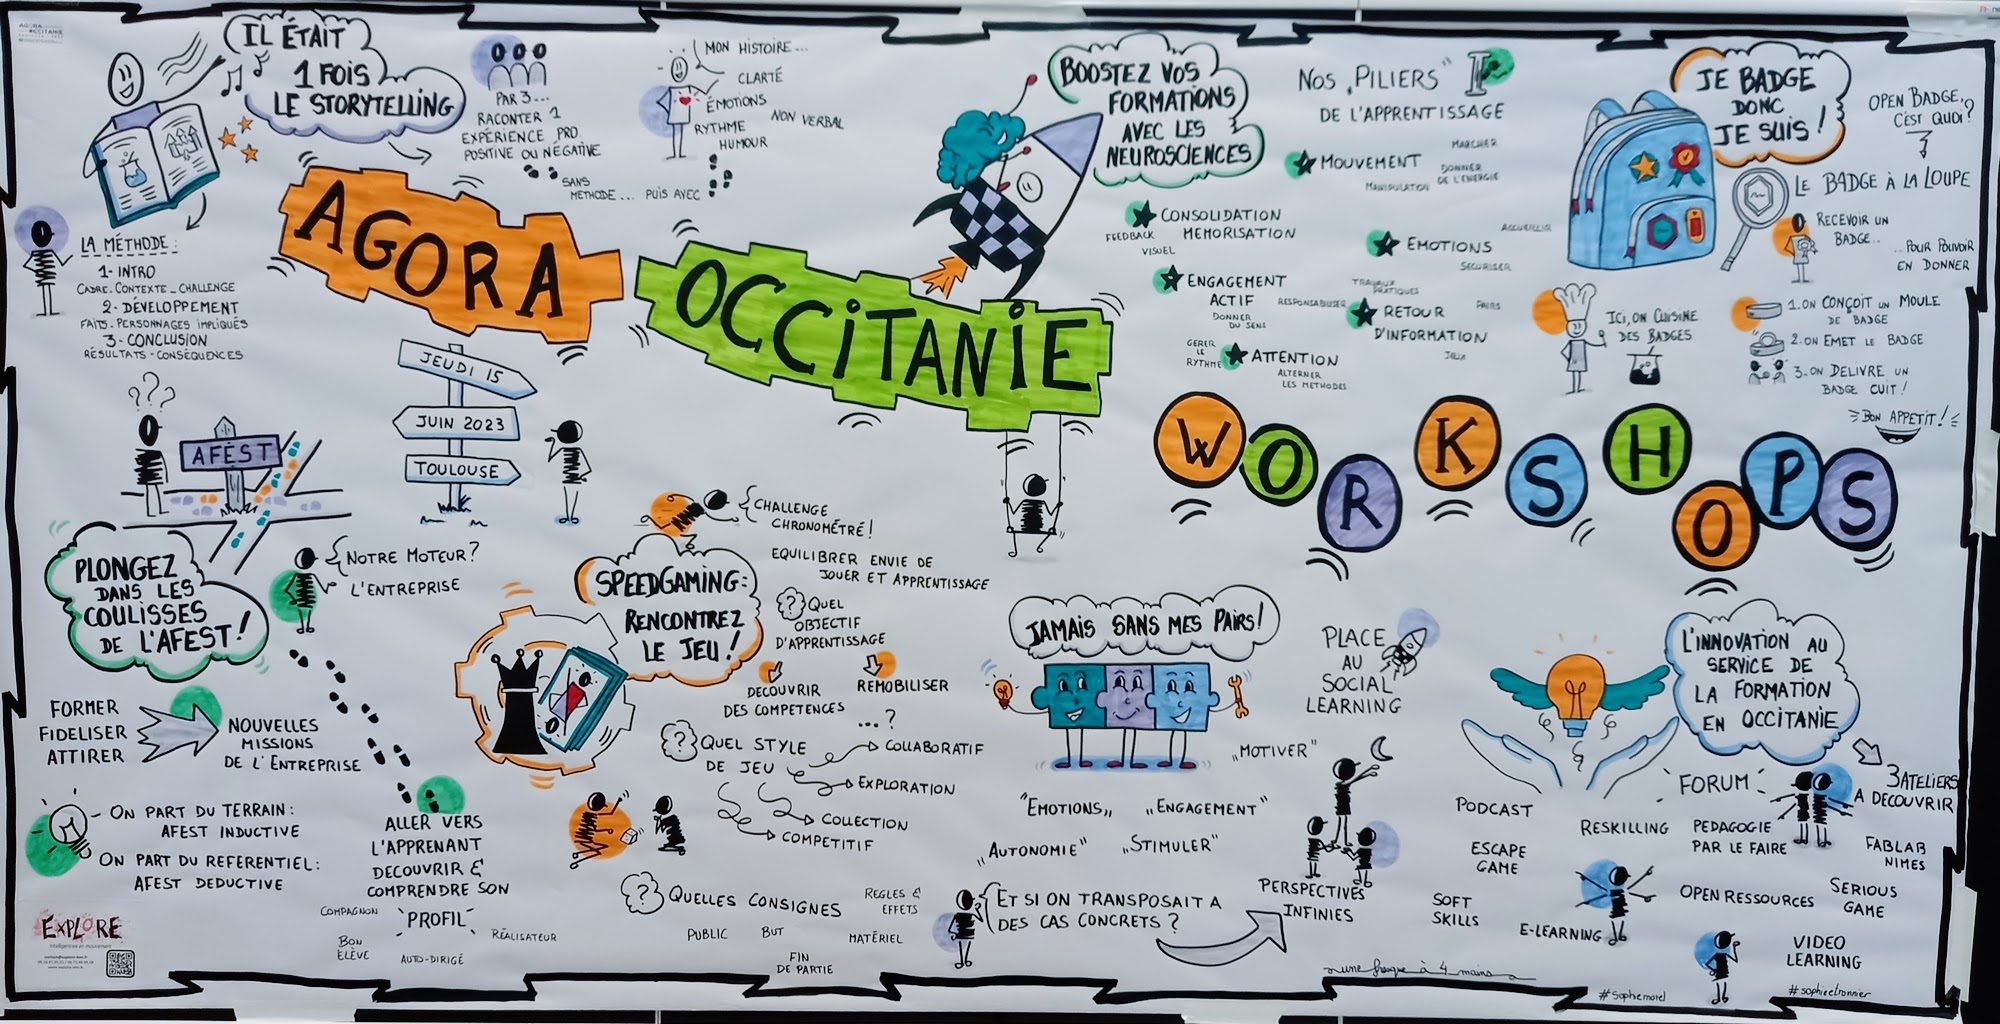 AGORA
OCCITANIE
IL ÉTAIT
1 FOIS
LE STORYTELLING
PAR 3...
RACONTER 1
EXPÉRIENCE PRO
POSITIVE OU NÉGATIVE
SANS
METHODE... PUIS AVEC
MON HISTOIRE...
CLARTÉ
ÉMOTIONS
NON VERBAL
RYTHME
HUMOUR
LA MÉTHODE:
1- INTRO
CADRE. CONTEXTE - CHALLENGE
2- DÉVELOPPEMENT
FAITS. PERSONNAGES IMPLIQUÉS
3- CONCLUSION
RÉSULTATS - CONSÉQUENCES
AGORA
OCCITANIE
JEUDI 15
JUIN 2023
TOULOUSE
BOOSTEZ VOS
FORMATIONS
AVEC LES
NEUROSCIENCES
NOS „PILIERS"
DE L'APPRENTISSAGE
MOUVEMENT
MARCHER
DONNER
DE L'ENERGIE
MANIPULATION
CONSOLIDATION
MEMORISATION
FEEDBACK
VISUEL
EMOTIONS
ACCUEILLIR
SECURISER
ENGAGEMENT
ACTIF
DONNER
DU SENS
RESPONSABILISER
TRAVAUX
PRATIQUES
RETOUR
D'INFORMATION
PAIRS
JEUX
GERER
LE
RYTHME
ATTENTION
ALTERNER
LES METHODES
JE BADGE
DONC
JE SUIS!
OPEN BADGE,
C'EST QUOI?
LE BADGE À LA LOUPE
RECEVOIR UN
BADGE..
...POUR POUVOIR
EN DONNER
ICI, ON CUISINE
DES BADGES
1. ON CONÇOIT UN MOULE
DE BADGE
2. ON EMET LE BADGE
3. ON DELIVRE UN
BADGE CUIT!
BON APPETIT!
WORKSHOPS
???
AFEST
PLONGEZ
DANS LES
COULISSES
DE L'AFEST!
NOTRE MOTEUR?
L'ENTREPRISE
FORMER
FIDELISER
ATTIRER
NOUVELLES
MISSIONS
DE L'ENTREPRISE
ON PART DU TERRAIN:
AFEST INDUCTIVE
ON PART DU REFERENTIEL:
AFEST DEDUCTIVE
ALLER VERS
L'APPRENANT
DECOUVRIR &
COMPRENDRE SON
PROFIL
COMPAGNON
BON
ELÈVE
AUTO-DIRIGÉ
RÉALISATEUR
EXPLORE
SPEEDGAMING:
RENCONTREZ
LE JEU!
CHALLENGE
CHRONOMÉTRÉ!
EQUILIBRER ENVIE DE
JOUER ET APPRENTISSAGE
? QUEL
OBJECTIF
D'APPRENTISSAGE
DECOUVRIR
DES COMPETENCES
REMOBILISER
...?
? QUEL STYLE
DE JEU
COLLABORATIF
EXPLORATION
COLLECTION
COMPETITIF
? QUELLES CONSIGNES
REGLES &
EFFETS
PUBLIC
BUT
MATÉRIEL
FIN
DE PARTIE
JAMAIS SANS MES PAIRS!
PLACE
AU
SOCIAL
LEARNING
„MOTIVER"
"EMOTIONS„
„ENGAGEMENT"
„AUTONOMIE"
„STIMULER"
ET SI ON TRANSPOSAIT A
DES CAS CONCRETS?
PERSPECTIVES
INFINIES
L'INNOVATION AU
SERVICE DE
LA FORMATION
EN OCCITANIE
3 ATELIERS
A DECOUVRIR
FORUM
PODCAST
RESKILLING
PEDAGOGIE
PAR LE FAIRE
ESCAPE
GAME
FABLAB
NIMES
OPEN RESSOURCES
SERIOUS
GAME
SOFT
SKILLS
E-LEARNING
VIDEO
LEARNING
une fresque à 4 mains
#Sophiemorel
#sophieetronnier